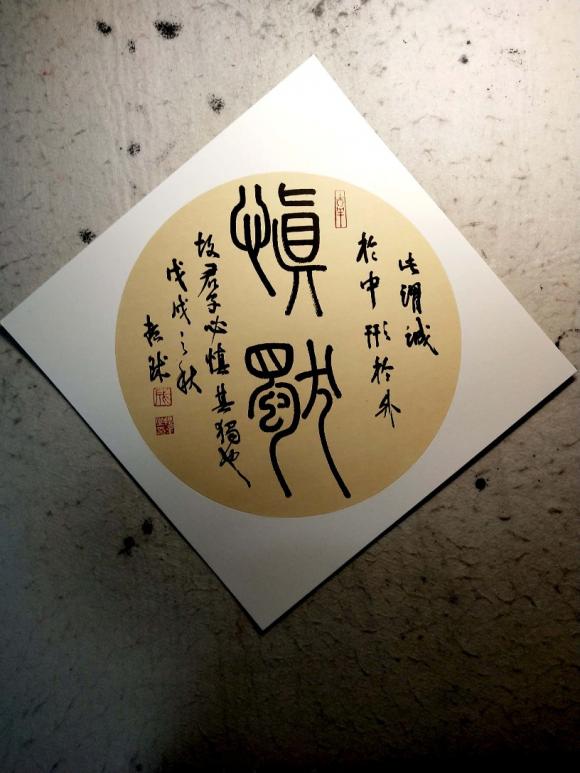 此謂誠
於中形於外
慎獨
故君子必慎其獨也
戊戌之秋